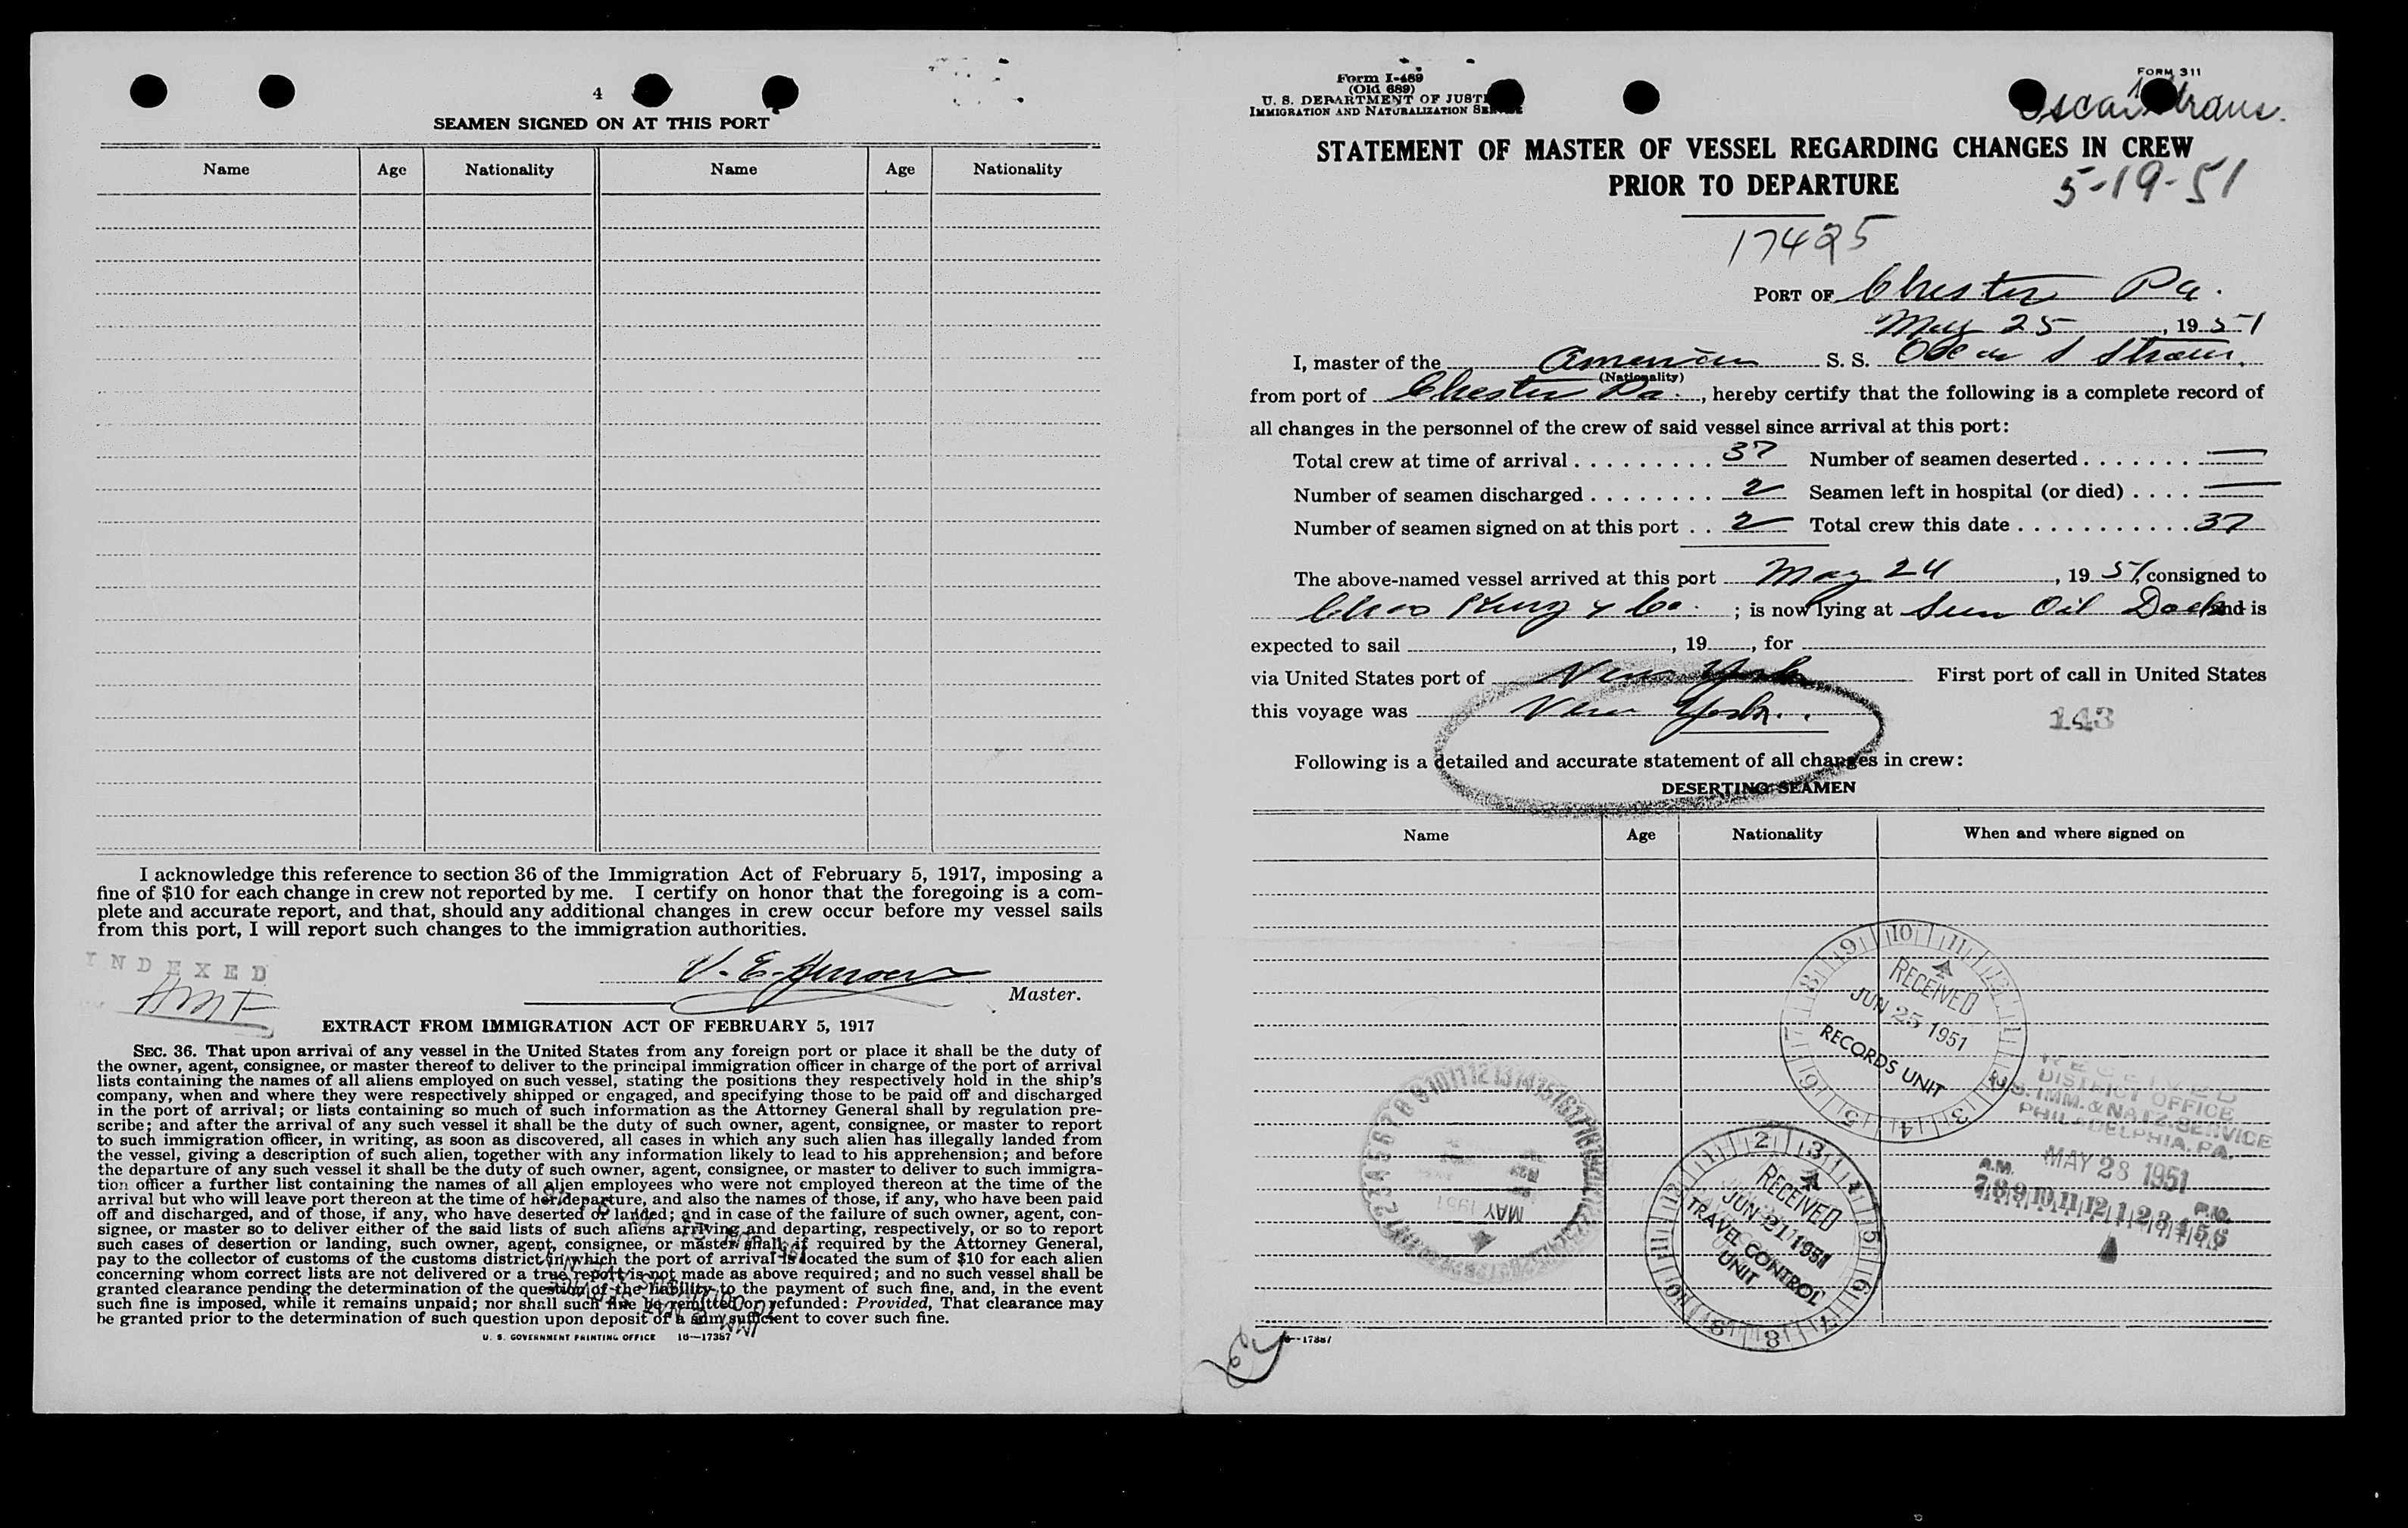 4
SEAMEN SIGNED ON AT THIS PORT
Name Age Nationality Name Age Nationality
I acknowledge this reference to section 36 of the Immigration Act of February 5, 1917, imposing a
fine of $10 for each change in crew not reported by me. I certify on honor that the foregoing is a com-
plete and accurate report, and that, should any additional changes in crew occur before my vessel sails
from this port, I will report such changes to the immigration authorities.
INDEXED
V. E.
Master.
EXTRACT FROM IMMIGRATION ACT OF FEBRUARY 5, 1917
SEC. 36. That upon arrival of any vessel in the United States from any foreign port or place it shall be the duty of
the owner, agent, consignee, or master thereof to deliver to the principal immigration officer in charge of the port of arrival
lists containing the names of all aliens employed on such vessel, stating the positions they respectively hold in the ship's
company, when and where they were respectively shipped or engaged, and specifying those to be paid off and discharged
in the port of arrival; or lists containing so much of such information as the Attorney General shall by regulation pre-
scribe; and after the arrival of any such vessel it shall be the duty of such owner, agent, consignee, or master to report
to such immigration officer, in writing, as soon as discovered, all cases in which any such alien has illegally landed from
the vessel, giving a description of such alien, together with any information likely to lead to his apprehension; and before
the departure of any such vessel it shall be the duty of such owner, agent, consignee, or master to deliver to such immigra-
tion officer a further list containing the names of all alien employees who were not employed thereon at the time of the
arrival but who will leave port thereon at the time of her departure, and also the names of those, if any, who have been paid
off and discharged, and of those, if any, who have deserted or landed; and in case of the failure of such owner, agent, con-
signee, or master so to deliver either of the said lists of such aliens arriving and departing, respectively, or so to report
such cases of desertion or landing, such owner, agent, consignee, or master shall, if required by the Attorney General,
pay to the collector of customs of the customs district in which the port of arrival is located the sum of $10 for each alien
concerning whom correct lists are not delivered or a true report is not made as above required; and no such vessel shall be
granted clearance pending the determination of the question of the liability to the payment of such fine, and, in the event
such fine is imposed, while it remains unpaid; nor shall such fine be remitted or refunded: Provided, That clearance may
be granted prior to the determination of such question upon deposit of a sum sufficient to cover such fine.
U. S. GOVERNMENT PRINTING OFFICE 16—17387
Form I-489
(Old 689)
U. S. DEPARTMENT OF JUSTICE
IMMIGRATION AND NATURALIZATION SERVICE
FORM 311
STATEMENT OF MASTER OF VESSEL REGARDING CHANGES IN CREW
PRIOR TO DEPARTURE
5-19-51
17425
PORT OF Chester Pa.
May 25, 1951
I, master of the American S. S. Oscar S Straus,
(Nationality)
from port of Chester Pa., hereby certify that the following is a complete record of
all changes in the personnel of the crew of said vessel since arrival at this port:
Total crew at time of arrival 37 Number of seamen deserted —
Number of seamen discharged 2 Seamen left in hospital (or died) —
Number of seamen signed on at this port 2 Total crew this date 37
The above-named vessel arrived at this port May 24, 1951, consigned to
Chas Kurz & Co.; is now lying at Sun Oil Dock and is
expected to sail , 19 , for
via United States port of New York First port of call in United States
this voyage was New York.
143
Following is a detailed and accurate statement of all changes in crew:
DESERTING SEAMEN
Name Age Nationality When and where signed on
RECEIVED
JUN 25 1951
RECORDS UNIT
RECEIVED
DISTRICT OFFICE
U.S. IMM. & NATZ. SERVICE
PHILADELPHIA, PA.
MAY 28 1951
A.M. P.M.
7 8 9 10 11 12 1 2 3 4 5 6
RECEIVED
JUN 21 1951
TRAVEL CONTROL
UNIT
MAY 1951
16—17387